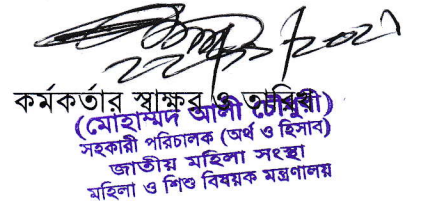 22/12/2021
কর্মকর্তার স্বাক্ষর ও তারিখ
(মোহাম্মদ আলী চৌধুরী)
সহকারী পরিচালক (অর্থ ও হিসাব)
জাতীয় মহিলা সংস্থা
মহিলা ও শিশু বিষয়ক মন্ত্রণালয়